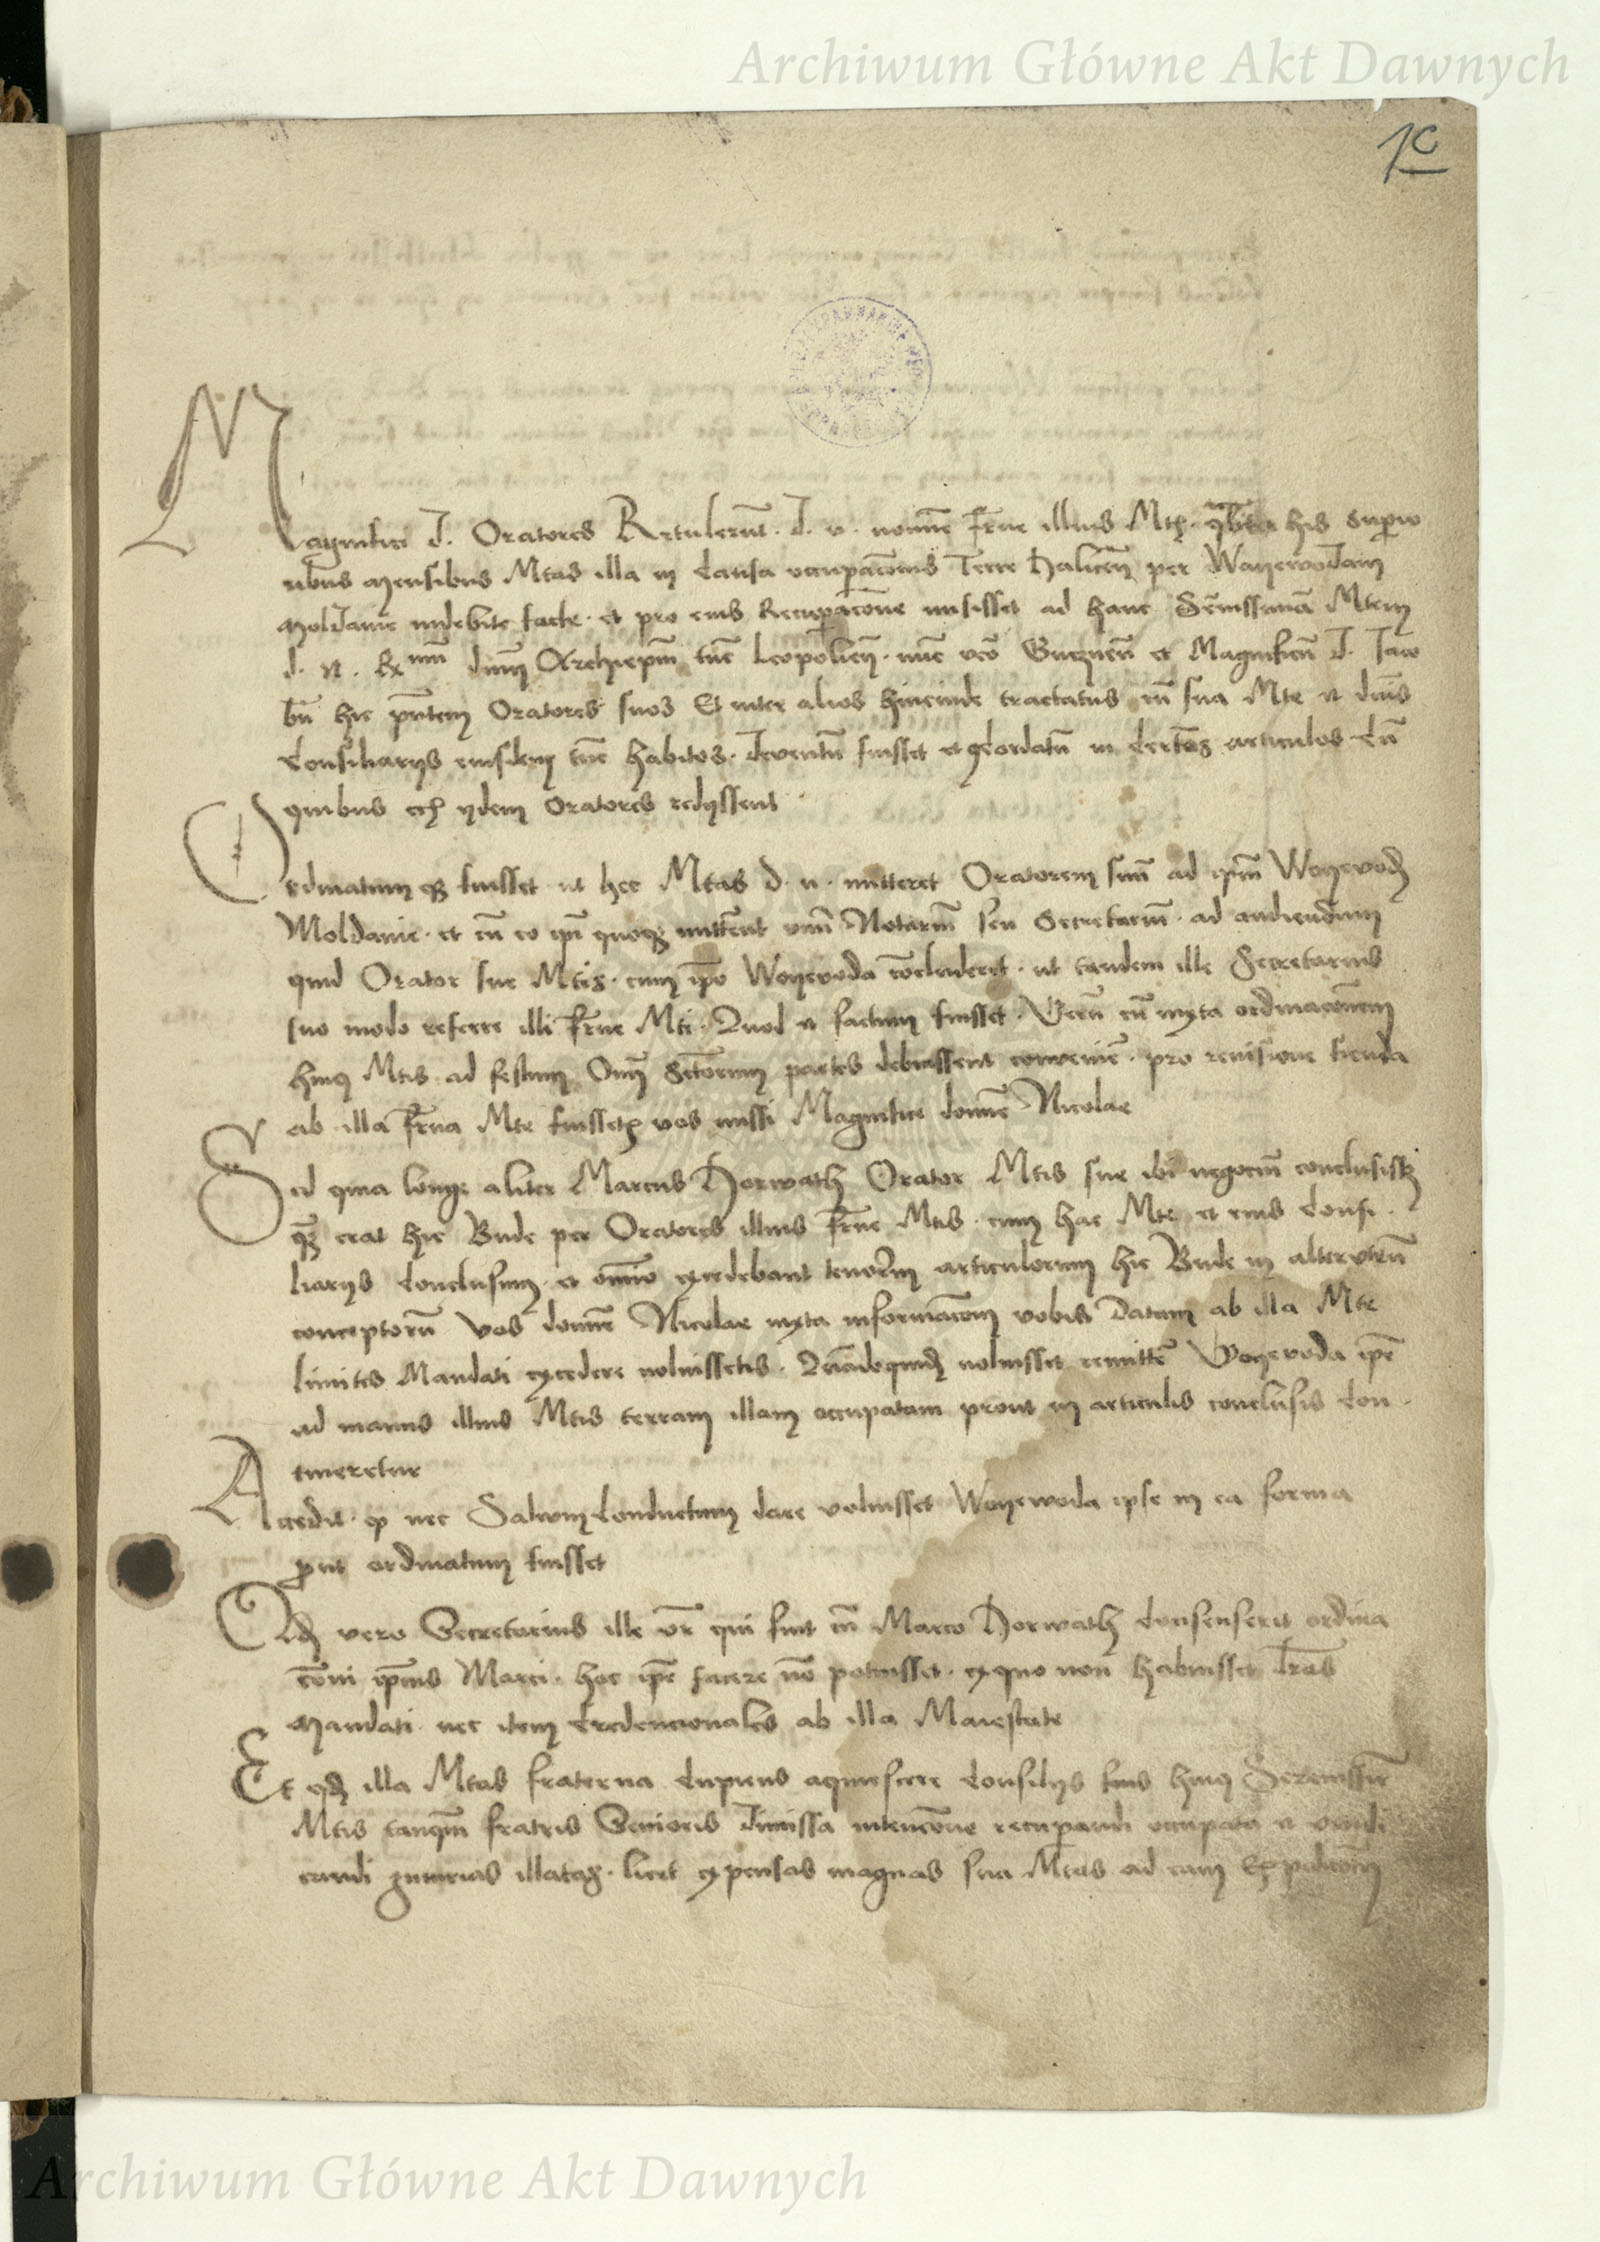 Archiwum Główne Akt Dawnych
Magnifici d. Oratores Retulerunt. d. v. nomine frne illius Mtis. qualiter his superio
ribus mensibus Mtas illa in causa occupacionis Terre Halicen per Wayewodam
Moldauie indebite facte. et pro eius Recuperacione misisset ad hanc Sermissimam Mtem
d. n. R mum dnm Archiepm tunc Leopolien. nunc vero Gneznen et Magnificum d. Jaco
bum hic pntem Oratores suos Et inter alios hincinde tractatus cum sua Mte et dnis
Consiliariis eiusdem tunc habitos. deuentum fuisset et concordatum in certos articulos cum
quibus etc ydem Oratores redyssent
Ordinatumque fuisset ut hec Mtas d. n. mitteret Oratorem suum ad ipm Woyevod
Moldauie. et cum eo ipi quoque mitterent vnum Notarium seu Secretarium. ad audiendum
quid Orator sue Mtis. cum ipo Woyevoda concluderet. ut tandem ille Secretarius
suo modo referre illi frne Mti. Quod et factum fuisset. Verum cum iuxta ordinacionem
huius Mtis ad festum Omnium Sanctorum partes debuissent convenire. pro reuisione fienda
ab illa frna Mte fuissetis vos missi Magnifice domine Nicolae
Sed quia longe aliter Marcus Horwath Orator Mtis sue ibi negocium conclusisset
quam erat hic Bude per Oratores illius frne Mtis. cum hac Mte et eius Consi.
liariis Conclusum. et omnino excedebant tenorem articulorum hic Bude in alterutrum
conceptorum Vos domine Nicolae iuxta informacionem vobis Datam ab illa Mte
limites Mandati excedere noluissetis. Quandoquidem noluisset remittere Woyevoda ipse
ad manus illius Mtis terram illam occupatam prout in articulis conclusis con.
tineretur
Accedit. quod nec Saluumconductum dare voluisset Woyewoda ipse in ea forma
prout ordinatum fuisset
Quod vero Secretarius ille vr qui fuit cum Marco Horwath Consenserit ordina
cioni ipius Marci. hoc ipse facere non potuisset. exquo non habuisset lras
Mandati nec item Credencionales ab illa Maiestate
Et quod illa Mtas fraterna Cupiens acquiescere Consiliis suis huius Serenissime
Mtis tanquam fratris Senioris dimissa intencione recuperandi occupata et vindi
candi iniurias illatas. licet expensas magnas sua Mtas ad eam Expedicionem
Archiwum Główne Akt Dawnych